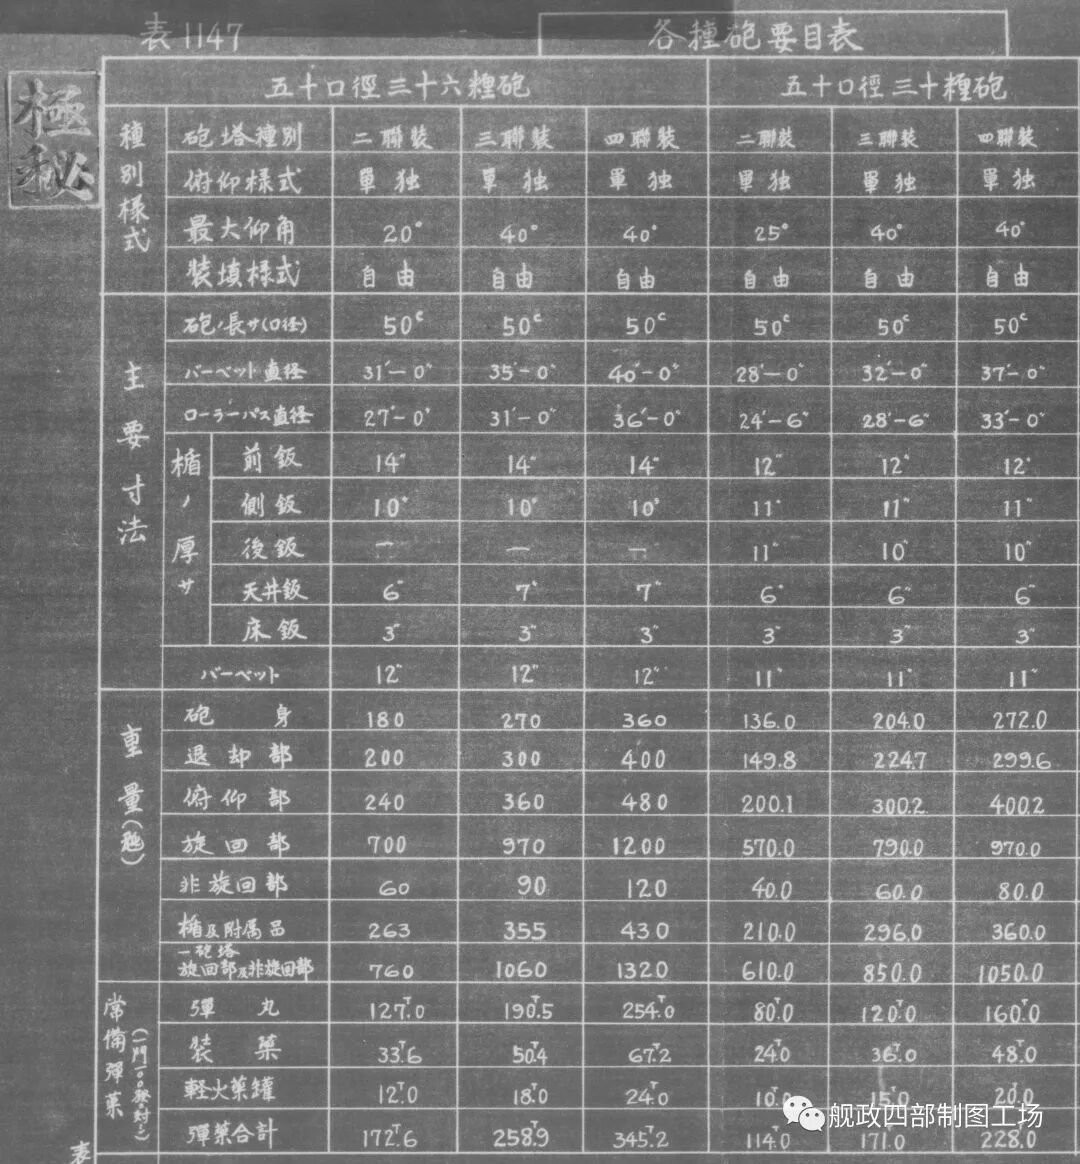 表1147
各種砲要目表
極秘
五十口徑三十六糎砲 五十口徑三十糎砲
種別様式
砲塔種別 二聯裝 三聯裝 四聯裝 二聯裝 三聯裝 四聯裝
俯仰様式 單独 單独 單独 單独 單独 單独
最大仰角 20° 40° 40° 25° 40° 40°
裝填様式 自由 自由 自由 自由 自由 自由
主要寸法
砲ノ長サ(口径) 50c 50c 50c 50c 50c 50c
バーベット直径 31'-0" 35'-0" 40'-0" 28'-0" 32'-0" 37'-0"
ローラーパス直径 27'-0" 31'-0" 36'-0" 24'-6" 28'-6" 33'-0"
楯ノ厚サ
前鈑 14" 14" 14" 12" 12" 12"
側鈑 10" 10" 10" 11" 11" 11"
後鈑 — — — 11" 10" 10"
天井鈑 6" 7" 7" 6" 6" 6"
床鈑 3" 3" 3" 3" 3" 3"
バーベット 12" 12" 12" 11" 11" 11"
重量(瓲)
砲身 180 270 360 136.0 204.0 272.0
退却部 200 300 400 149.8 224.7 299.6
俯仰部 240 360 480 200.1 300.2 400.2
旋回部 700 970 1200 570.0 790.0 970.0
非旋回部 60 90 120 40.0 60.0 80.0
楯及附属品 263 355 430 210.0 296.0 360.0
一砲塔
旋回部及非旋回部 760 1060 1320 610.0 850.0 1050.0
常備彈薬
(一門一〇〇発ニ対シ)
彈丸 127.0T 190.5T 254.0T 80.0T 120.0T 160.0T
裝薬 33.6T 50.4T 67.2T 24.0T 36.0T 48.0T
軽火薬罐 12.0T 18.0T 24.0T 10.0T 15.0T 20.0T
彈薬合計 172.6T 258.9T 345.2T 114.0T 171.0T 228.0T
表
舰政四部制图工场